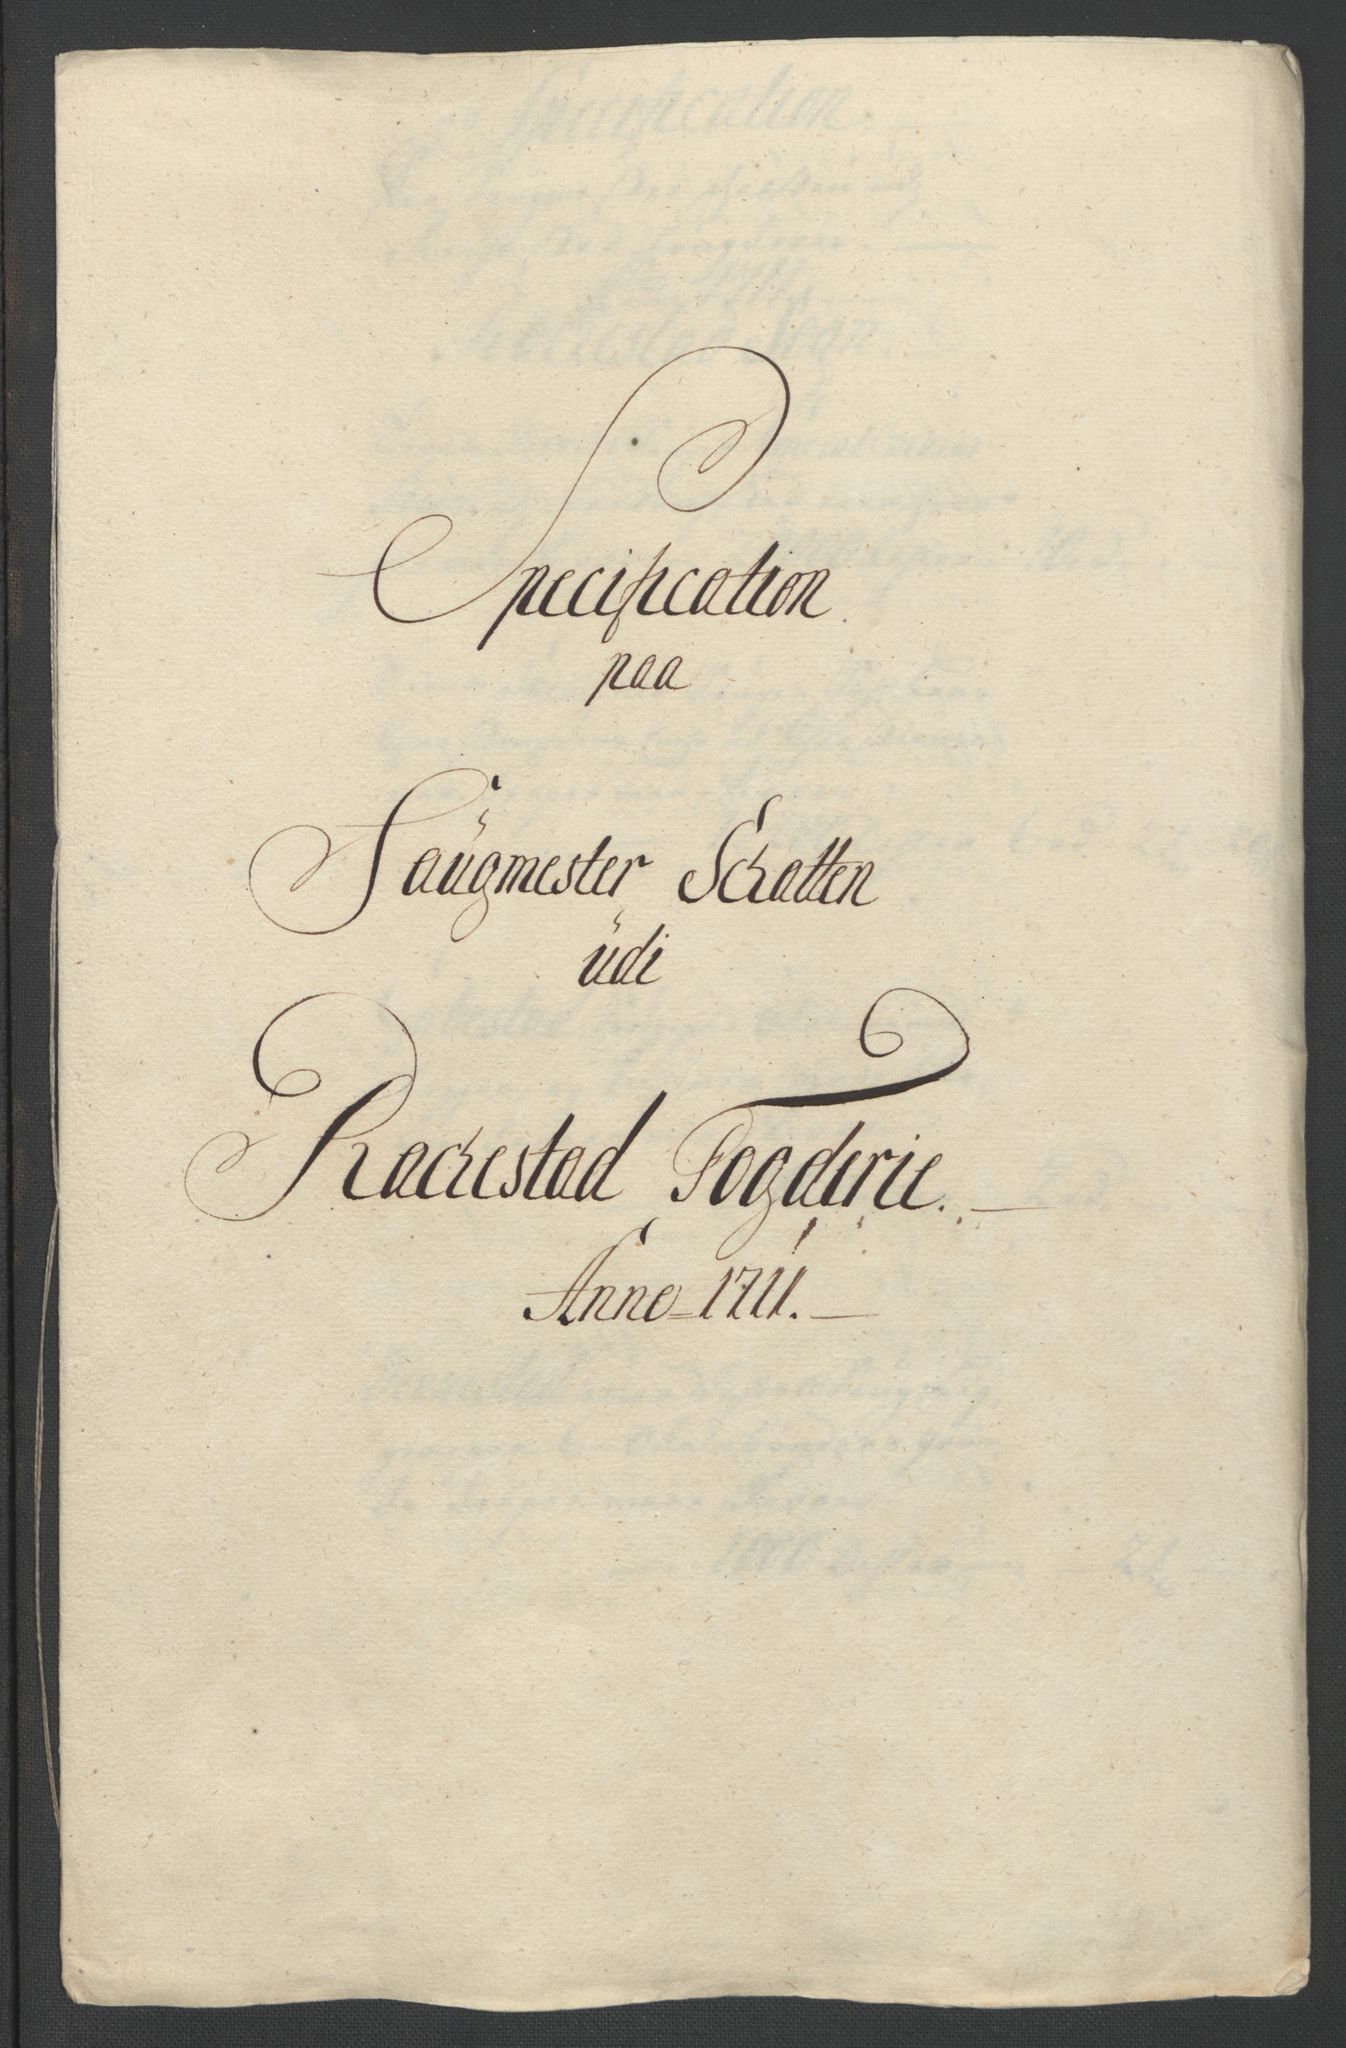 Specification
paa
Saŭgmester Schatten
ŭdi
Rackestad Fogderie.
Anno 1711.